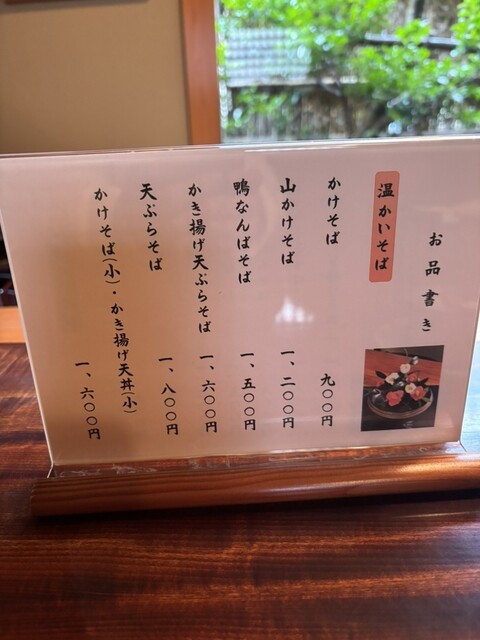 お品書き
温かいそば
かけそば 九〇〇円
山かけそば 一、二〇〇円
鴨なんばそば 一、五〇〇円
かき揚げ天ぷらそば 一、六〇〇円
天ぷらそば 一、八〇〇円
かけそば(小)・かき揚げ天丼(小) 一、六〇〇円